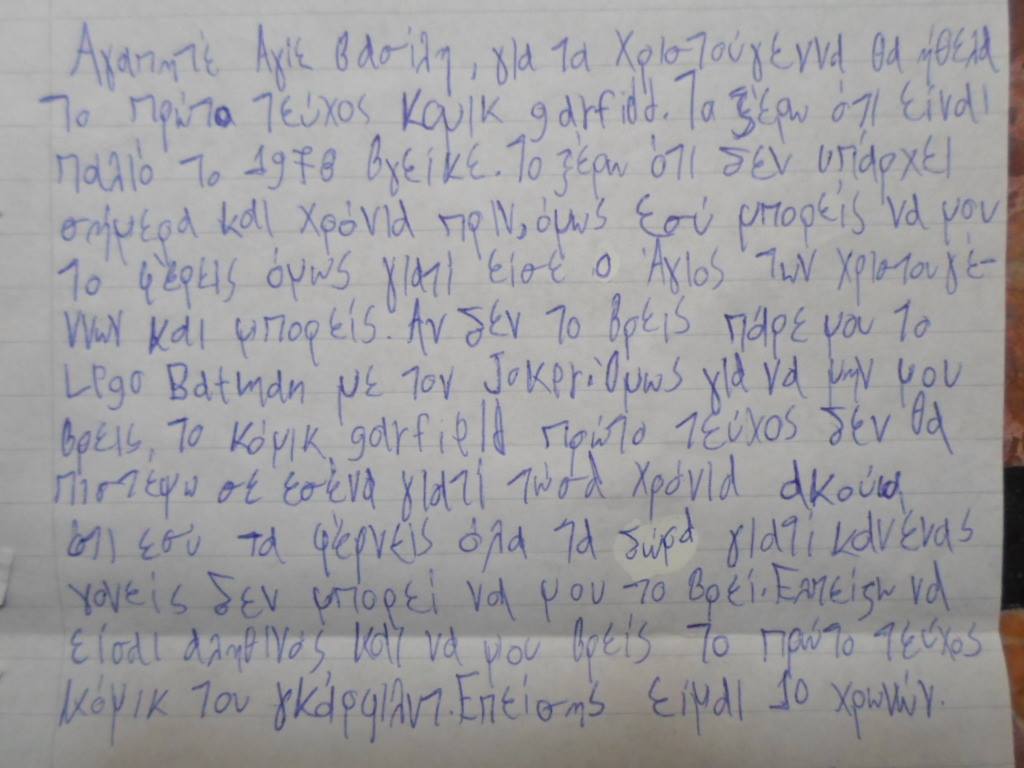 Αγαπητέ Αγιε Βασίλη, για τα Χριστούγεννα θα ήθελα
το πρώτο τεύχος κόμικ garfidd. Το ξέρω ότι είναι
παλιό το 1978 βγείκε. Το ξέρω ότι δεν υπάρχει
σήμερα και χρόνια πριν, όμως εσύ μπορείς να μου
το φέρεις όμως γιατί είσε ο Άγιος των Χριστουγέ-
ννων και μπορείς. Αν δεν το βρεις πάρε μου το
Lego Batman με τον Joker. Όμως για να μην μου
βρεις, το κόμικ garfield πρώτο τεύχος δεν θα
πιστέψω σε εσένα γιατί τώσα χρόνια ακούω
ότι εσυ τα φέρνεις όλα τα δώρα γιατί κανένας
γονείς δεν μπορεί να μου το βρεί. Ελπείζω να
είσαι αληθινός και να μου βρείς το πρώτο τεύχος
κόμικ του γκάρφιλντ. Επείσης είμαι 10 χρωνών.